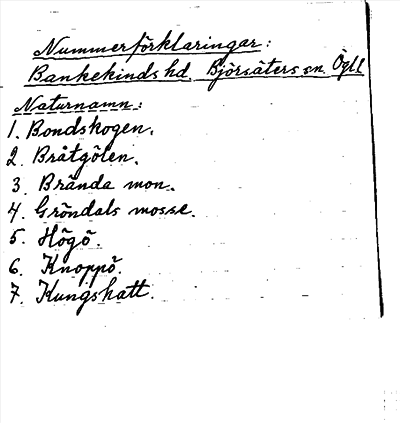 Nummerförklaringar:
Bankekinds hd. Björsäters sn. Ögl
Naturnamn:
1. Bondskogen.
2. Bråtgölen.
3. Brända mon.
4. Gröndals mosse.
5. Högö.
6. Knoppö.
7. Kungshatt.